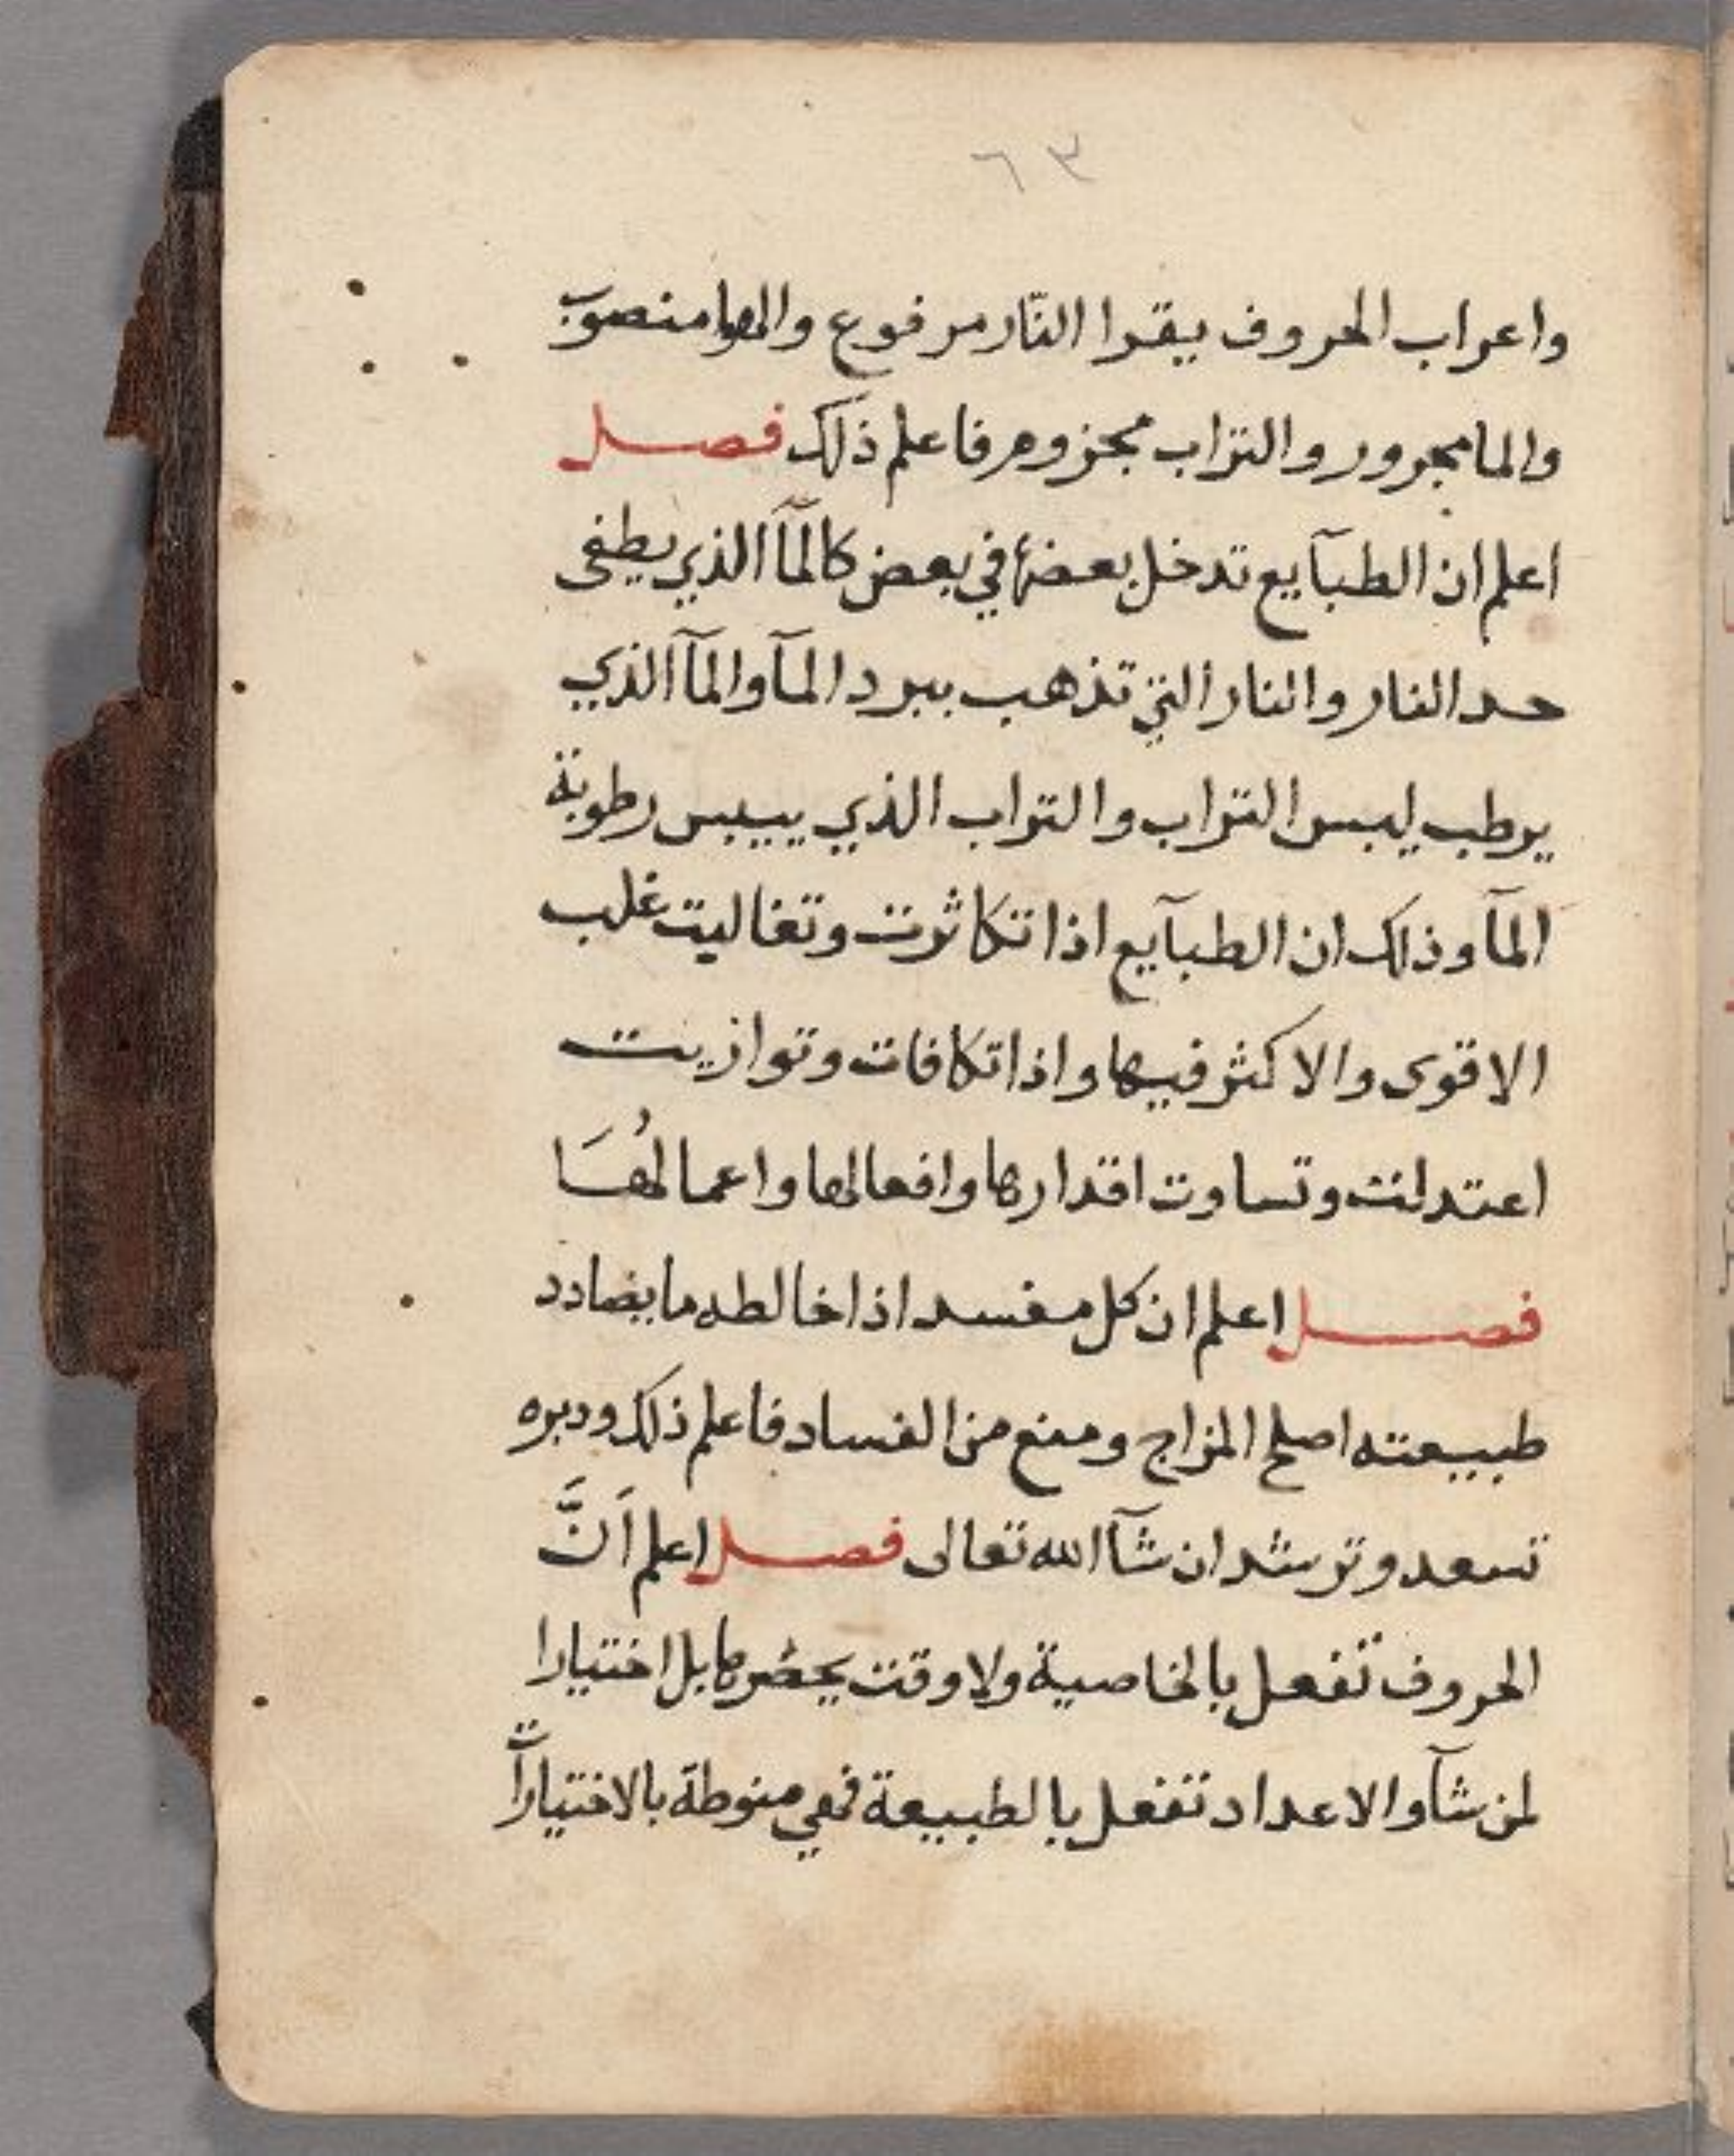 ٦٣
واعراب الحروف يقرا النّار مرفوع والهوا منصوب
والما مجرور والتراب مجزوم فاعلم ذلك فصل
اعلم ان الطبآيع تدخل بعضها في بعض كالمآ الذي يطفى
حد النار والنار التي تذهب ببرد المآ والمآ الذي
يرطب ليبس التراب والتراب الذي ييبس رطوبة
المآ وذلك ان الطبآيع اذا تكاثرت وتغاليت غلب
الاقوى والاكثر فيها واذا تكافات وتوازيت
اعتدلت وتساوت اقدارها وافعالها واعمالهُا
فصل اعلم ان كل مفسد اذا خالطه ما يضادد
طبيعته اصلح المزاج ومنع من الفساد فاعلم ذلك ودبره
تسعد وترشد ان شآ الله تعالى فصل اعلم اَنَّ
الحروف تفعل بالخاصية ولا وقت يحضرها بل اختيارا
لمن شآ والاعداد تفعل بالطبيعة فهي منوطة بالاختيارات